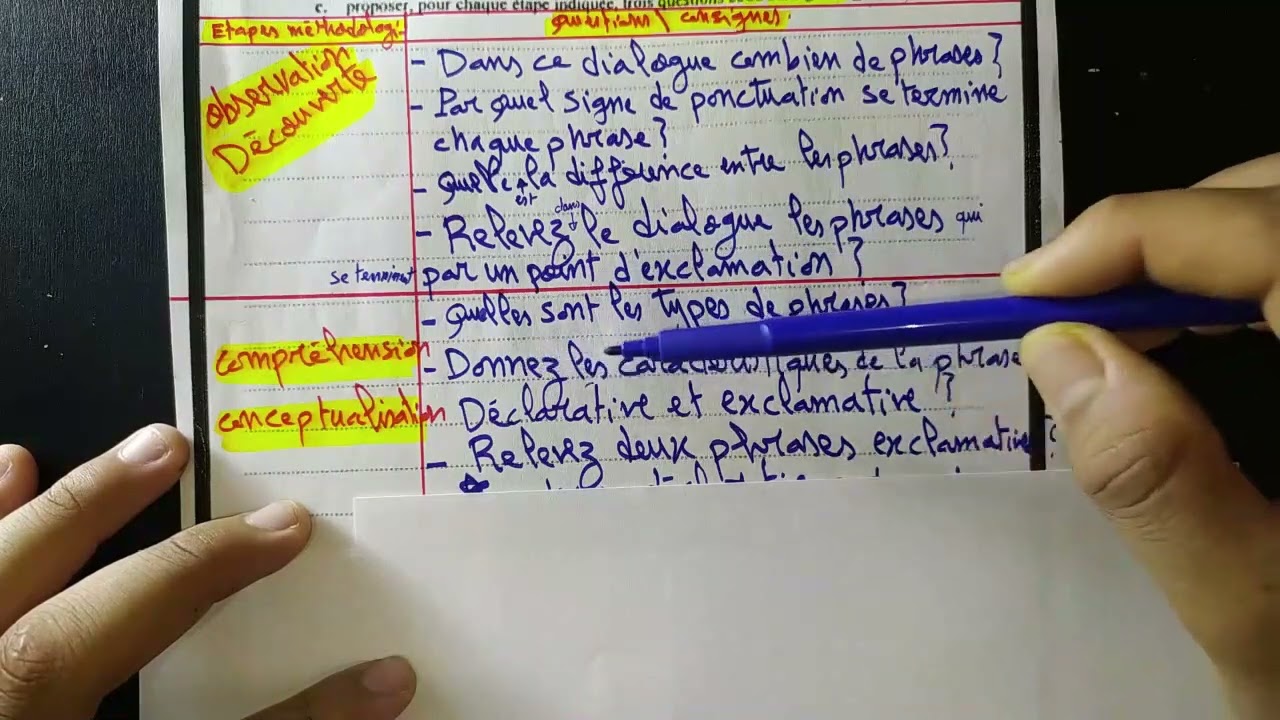 c. proposer, pour chaque étape indiquée, trois questions
Etapes méthodologi.
questions \ consignes.
Observation
Découverte
- Dans ce dialogue combien de phrases?
- Par quel signe de ponctuation se termine
chaque phrase?
- quelle est la différence entre les phrases?
- Relevez dans le dialogue les phrases qui
se terminent par un point d'exclamation?
- quelles sont les types de phrases?
compréhension
- Donnez les caractéristiques de la phrase
conceptualisation
Déclarative et exclamative?
- Relevez deux phrases exclamative?